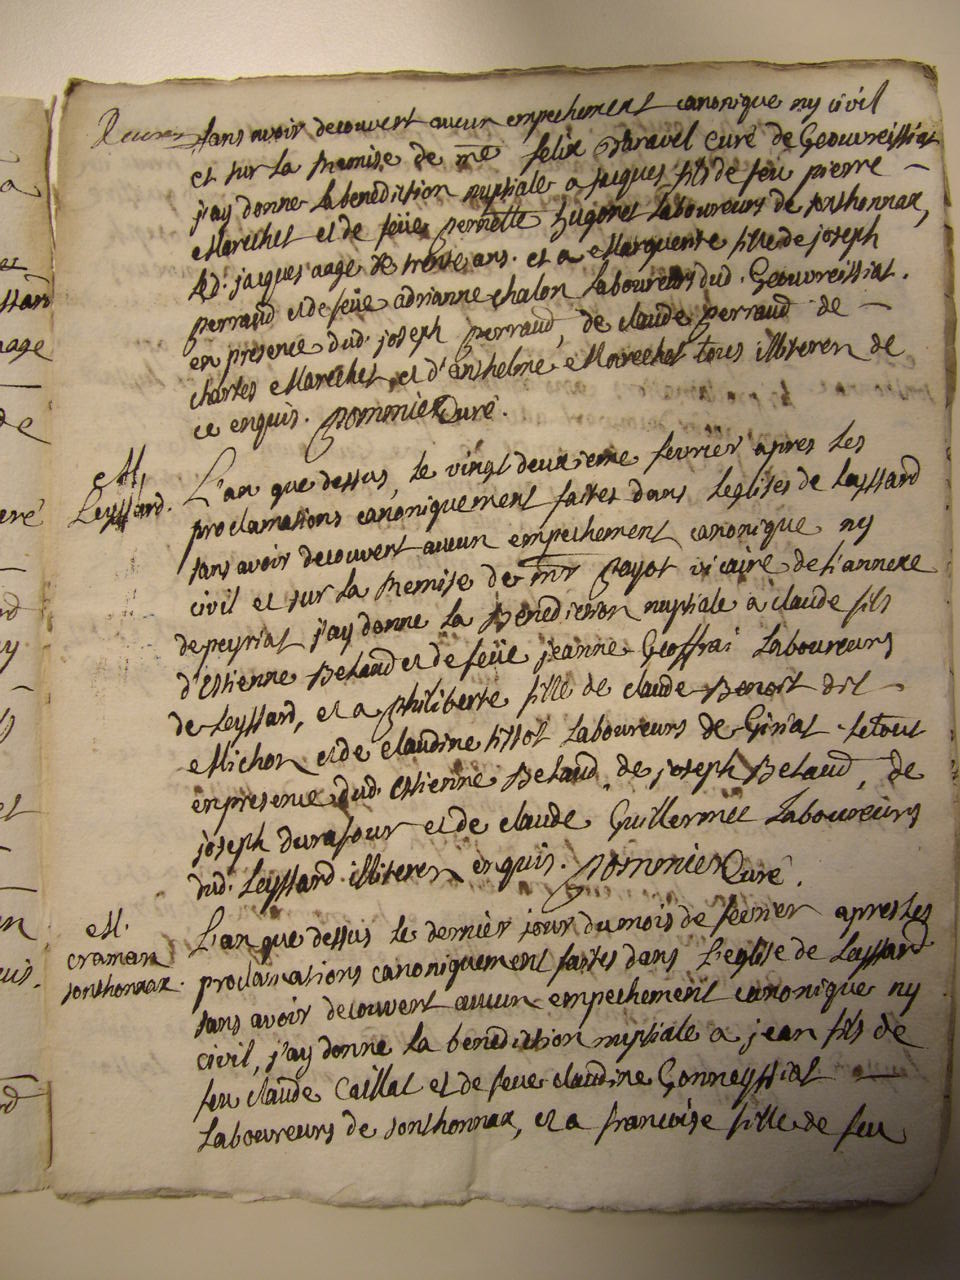 sans avoir decouvert aucun empechement canonique ny civil
et sur la Remise de me felix curé de Geouvreissiat
j'ay donné la benediction nuptiale a jaques fils de feu pierre
Marechet et de feüe pernette hugonet Laboureurs de sonthonnax,
led. jacques aagé de trente ans. et a Marguerite fille de joseph
perraud et de feüe adrianne chalon Laboureurs dud. Geouvreissiat.
en presence dud. joseph perraud, de claude perraud de
charles Marechet, et d'anthelme Marechet tous illiteren de
ce enquis. pommier Curé.
M.
Leyssard.
L'an que dessus, le vingt deuxieme fevrier apres les
proclamations canoniquement faites dans leglises de Leyssard
sans avoir decouvert aucun empechement canonique ny
civil et sur la Remise de mr payot vicaire de l'annexe
de peyriat j'ay donné la Benediction nuptiale a claude fils
d'Estienne Belaud et de feüe jeanne Geoffrai Laboureurs
de Leyssard, et a philiberte fille de claude Benoit dit
Michon et de claudine tissot Laboureurs de Giriat. le tout
en presence dud. Estienne Belaud, de joseph Belaud, de
joseph durafour et de claude Guillermet Laboureurs
dud. Leyssard illiteren enquis. pommier Curé.
M.
craman
sonthonnax.
L'an que dessus le dernier jour du mois de fevrier apres les
proclamations canoniquement faites dans l'eglise de Leyssard
sans avoir decouvert aucun empechement canonique ny
civil, j'ay donné la benediction nuptiale a jean fils de
feu claude Caillat et de feue claudine Gonneyssiat
Laboureurs de sonthonnax, et a francoise fille de feu